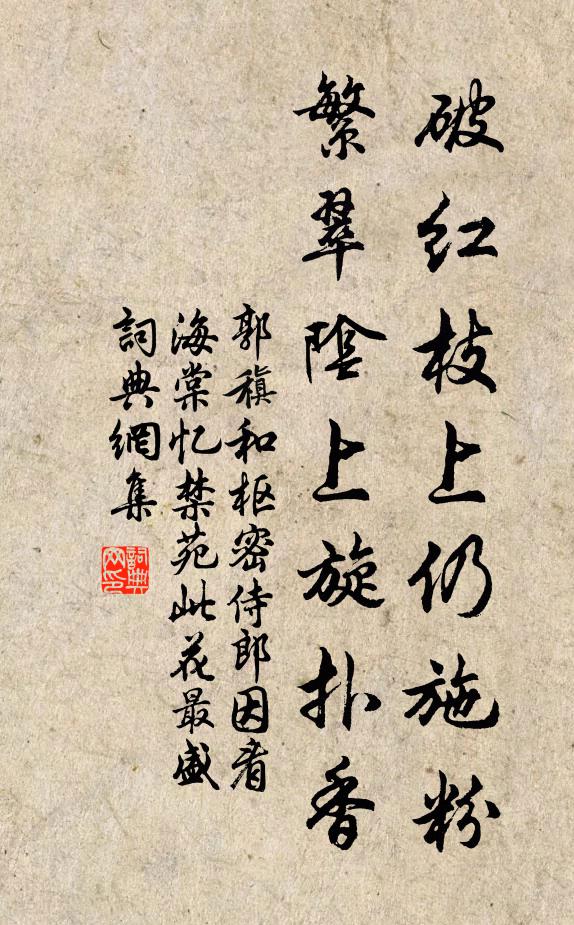 破红枝上仍施粉
繁翠陰上旋扑香
郭稹和枢密侍郎因看
海棠忆禁苑此花最盛
詞典網集
詞典
网印